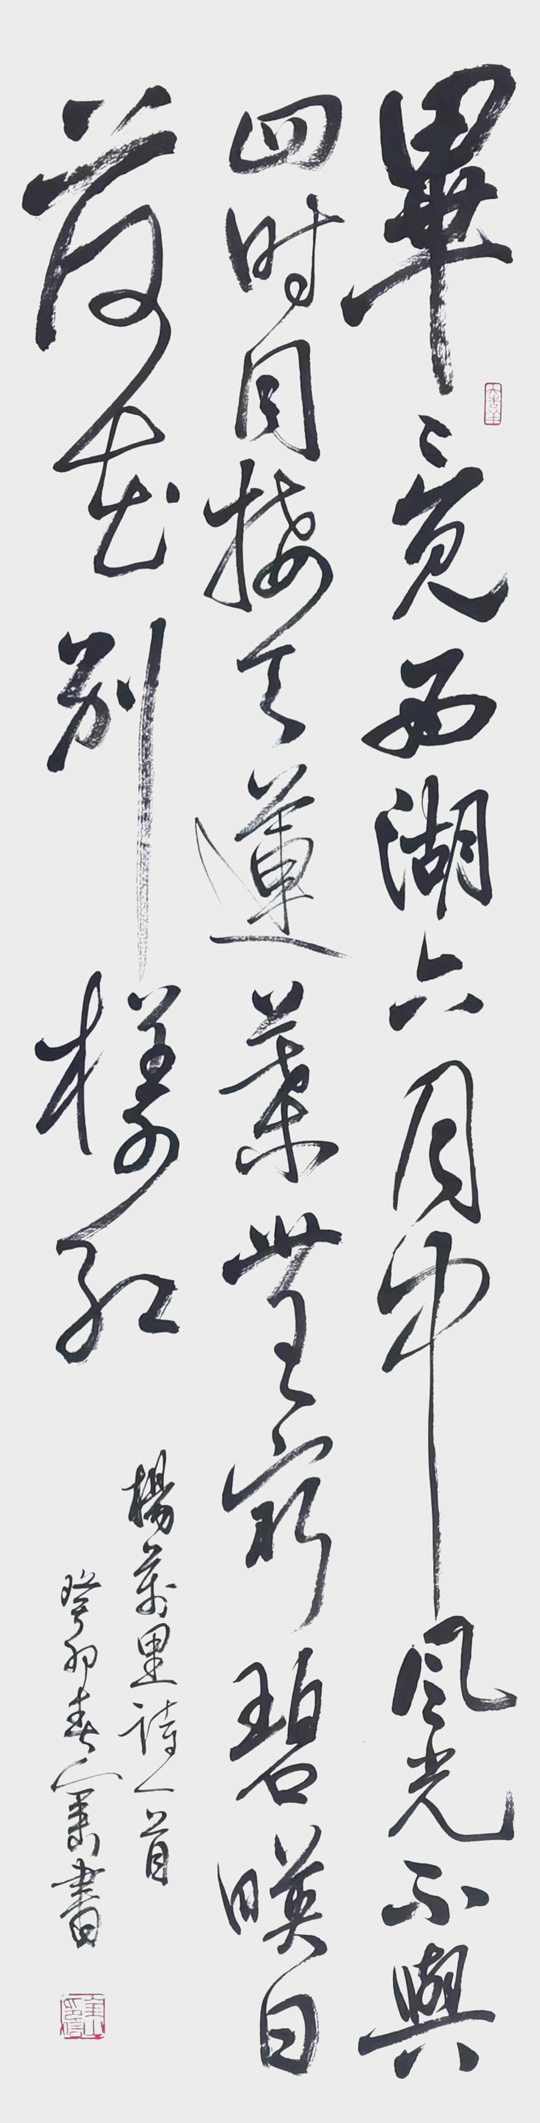 畢竟西湖六月中风光不與
四时同接天蓮葉無窮碧暎日
荷花別樣紅
楊萬里詩一首
癸卯春書